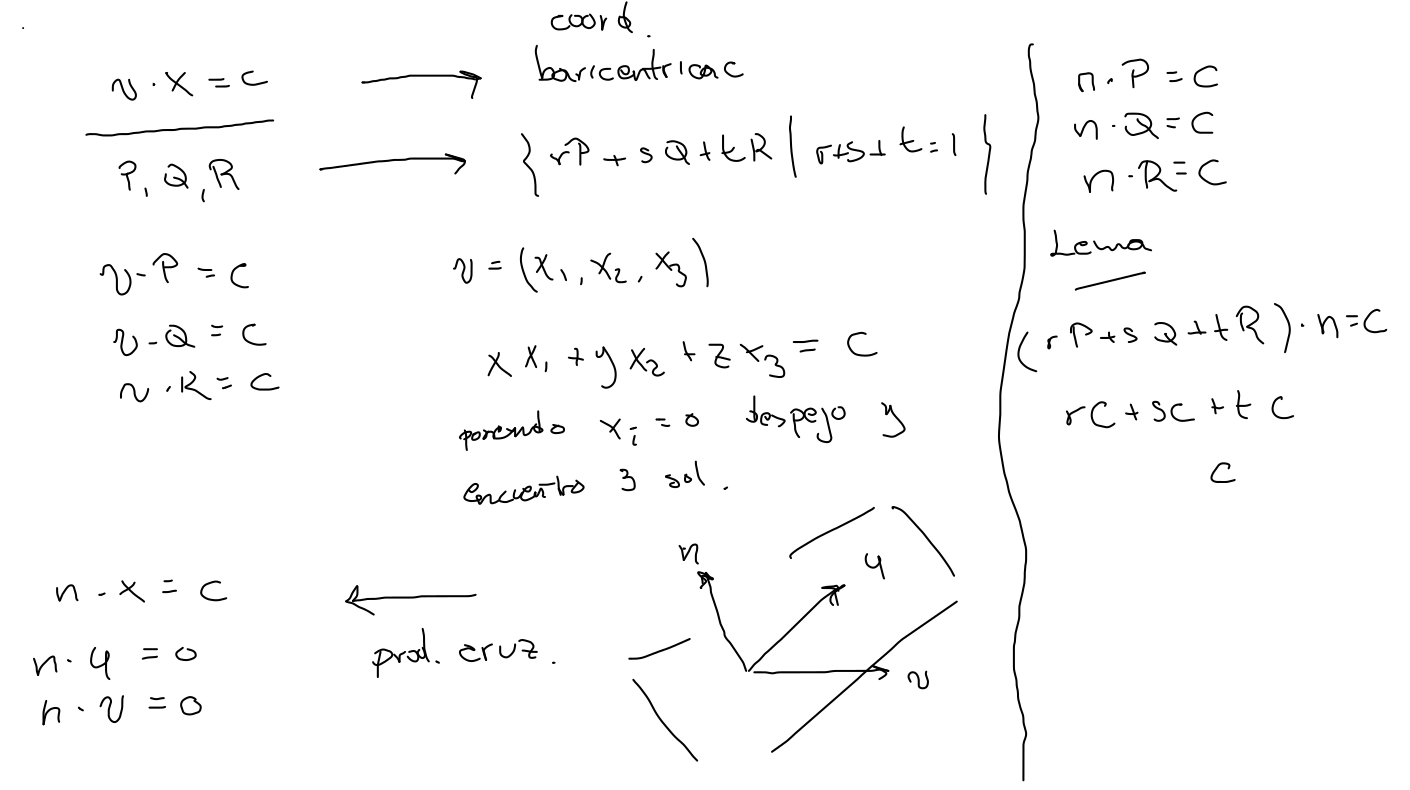 coord.
baricentricac
v · X = C
{ rP + sQ + tR | r+s+t = 1 }
P, Q, R
v · P = C
v · Q = C
v · R = C
v = (x₁, x₂, x₃)
x x₁ + y x₂ + z x₃ = C
poniendo xᵢ = 0 despejo y
encuentro 3 sol.
n · x = C
n · u = 0
n · v = 0
prod. cruz.
n
u
v
n · P = C
n · Q = C
n · R = C
Lema
(rP + sQ + tR) · n = C
rC + sC + tC
C